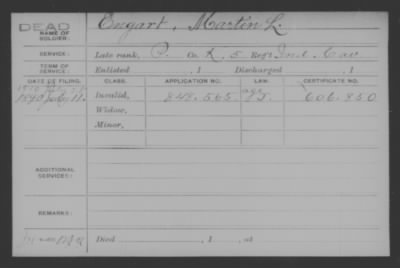 DEAD Engart, Martin L.
NAME OF SOLDIER:
SERVICE: Late rank, P. Co. K, 5 Reg't Ind. Cav
TERM OF SERVICE: Enlisted , 1 Discharged , 1
DATE OF FILING. CLASS. APPLICATION NO. LAW. CERTIFICATE NO.
1890 July 11. Invalid, 848.565 606.850
Widow,
Minor,
ADDITIONAL SERVICES:
REMARKS:
Died , 1 , at